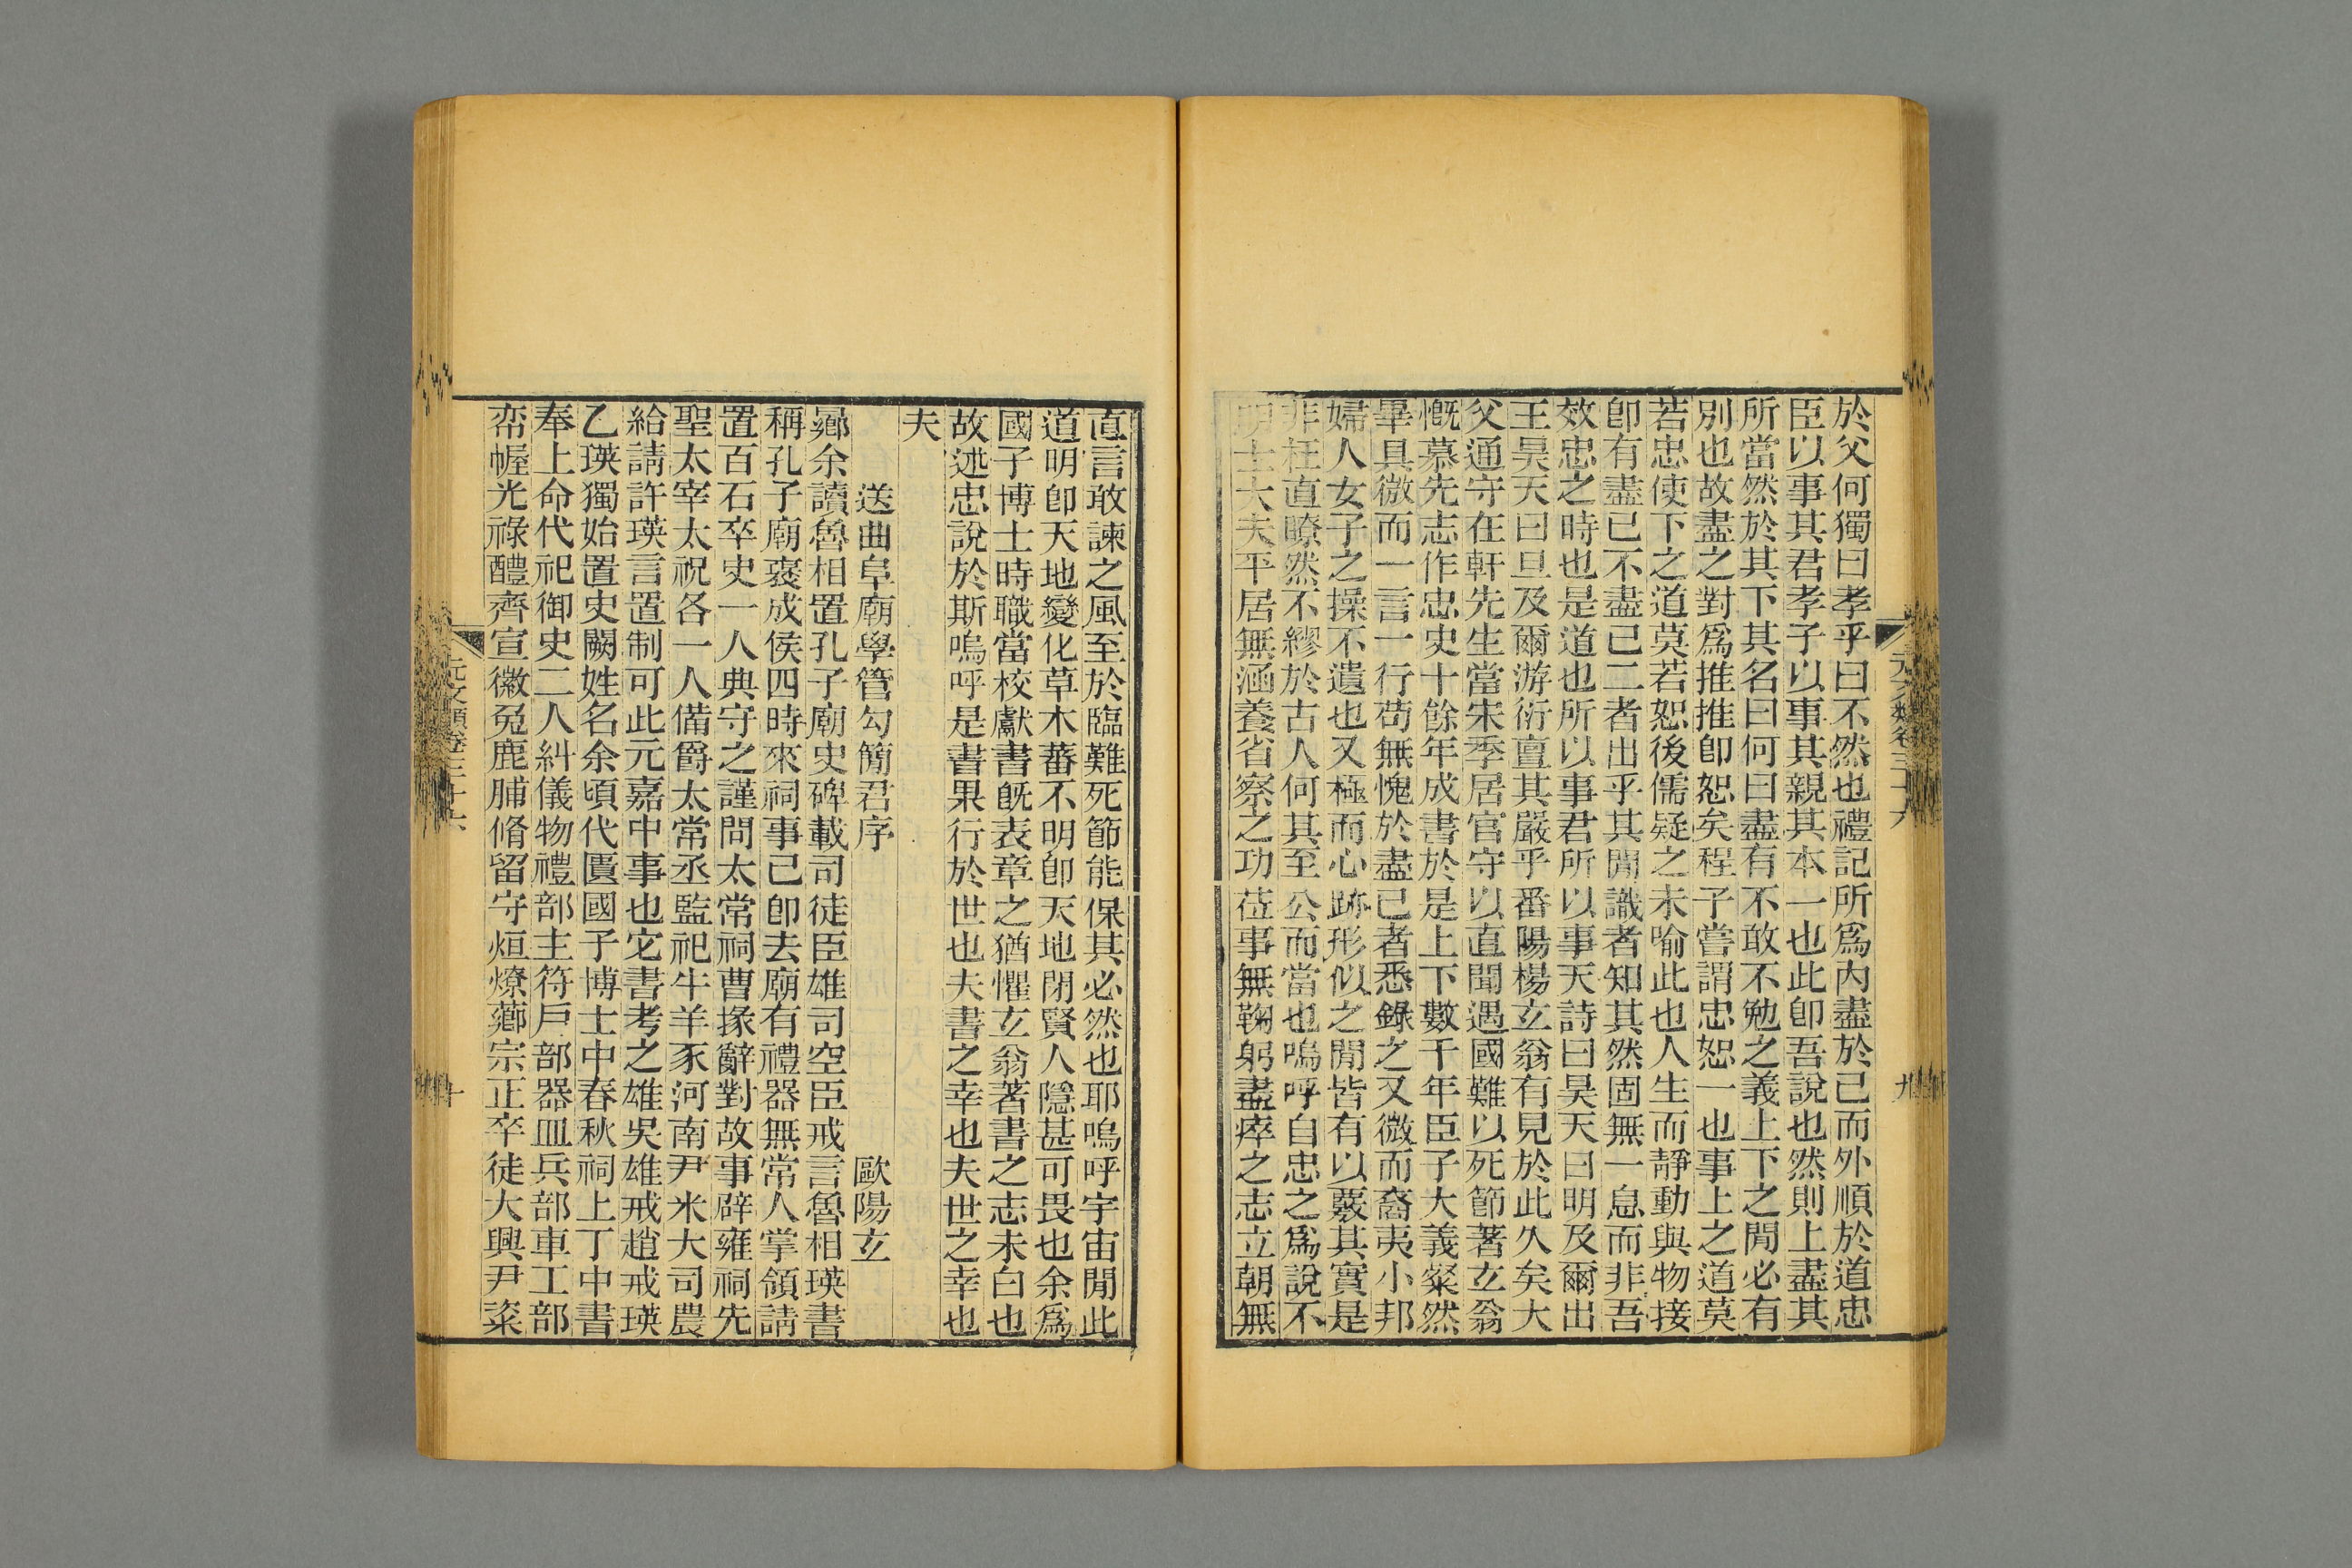 元文類卷三十六
九
於父何獨曰孝乎曰不然也禮記所爲內盡於己而外順於道忠
臣以事其君孝子以事其親其本一也此卽吾說也然則上盡其
所當然於其下其名曰何曰盡有不敢不勉之義上下之閒必有
別也故盡之對爲推推卽恕矣程子嘗謂忠恕一也事上之道莫
若忠使下之道莫若恕後儒疑之未喻此也人生而靜動與物接
卽有盡已不盡已二者出乎其閒識者知其然固無一息而非吾
效忠之時也是道也所以事君所以事天詩曰昊天曰明及爾出
王昊天曰旦及爾游衍亶其嚴乎番陽楊立翁有見於此久矣大
父通守在軒先生當宋季居官守以直聞遇國難以死節著立翁
慨慕先志作忠史十餘年成書於是上下數千年臣子大義粲然
畢具微而一言一行苟無愧於盡己者悉錄之又微而裔夷小邦
婦人女子之操不遺也又極而心跡形似之閒皆有以覈其實是
非枉直瞭然不繆於古人何其至公而當也嗚呼自忠之爲說不
明士大夫平居無涵養省察之功莅事無鞠躬盡瘁之志立朝無
直言敢諫之風至於臨難死節能保其必然也耶嗚呼宇宙閒此
道明卽天地變化草木蕃不明卽天地閉賢人隱甚可畏也余爲
國子博士時職當校獻書旣表章之猶懼立翁著書之志未白也
故述忠說於斯嗚呼是書果行於世也夫書之幸也夫世之幸也
夫
送曲阜廟學管勾簡君序　歐陽玄
曏余讀魯相置孔子廟史碑載司徒臣雄司空臣戒言魯相瑛書
稱孔子廟褒成侯四時來祠事已卽去廟有禮器無常人掌領請
置百石卒史一人典守之謹問太常祠曹掾辭對故事辟雍祠先
聖太宰太祝各一人備爵太常丞監祀牛羊豕河南尹米大司農
給請許瑛言置制可此元嘉中事也它書考之雄吳雄戒趙戒瑛
乙瑛獨始置史闕姓名余頃代匱國子博士中春秋祠上丁中書
奉上命代祀御史二人糾儀物禮部主符戶部器皿兵部車工部
帟幄光祿醴齊宣徽兔鹿脯脩留守烜燎薌宗正卒徒大興尹粢
元文類卷三十六
十